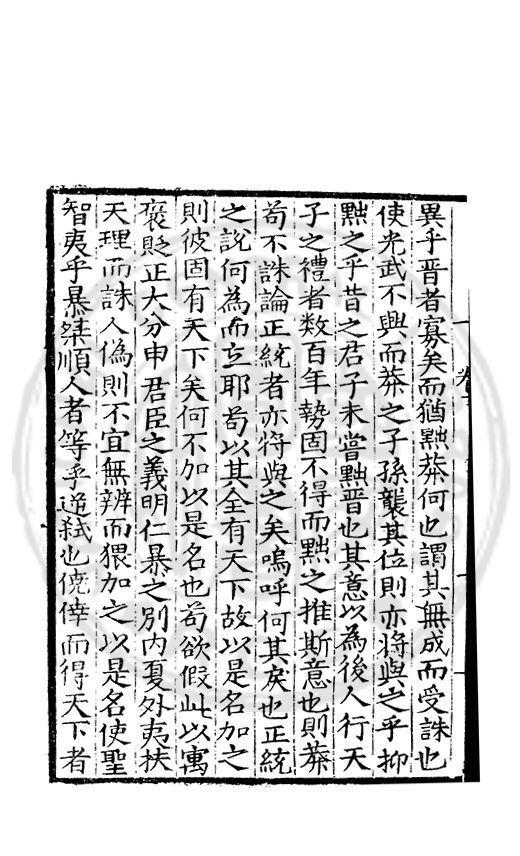 異乎晋者寡矣而猶黜莽何也謂其無成而受誅也
使光武不興而莽之子孫襲其位則亦將與之乎抑
黜之乎昔之君子未嘗黜晋也其意以為後人行天
子之禮者数百年勢固不得而黜之推斯意也則莽
苟不誅論正統者亦将與之矣嗚呼何其戾也正統
之說何為而立耶苟以其全有天下故以是名加之
則彼固有天下矣何不加以是名也苟欲假此以寓
褒貶正大分申君臣之義明仁暴之别内夏外夷扶
天理而誅人偽則不宜無辨而猥加之以是名使聖
智夷乎暴桀順人者等乎逆弑也僥倖而得天下者